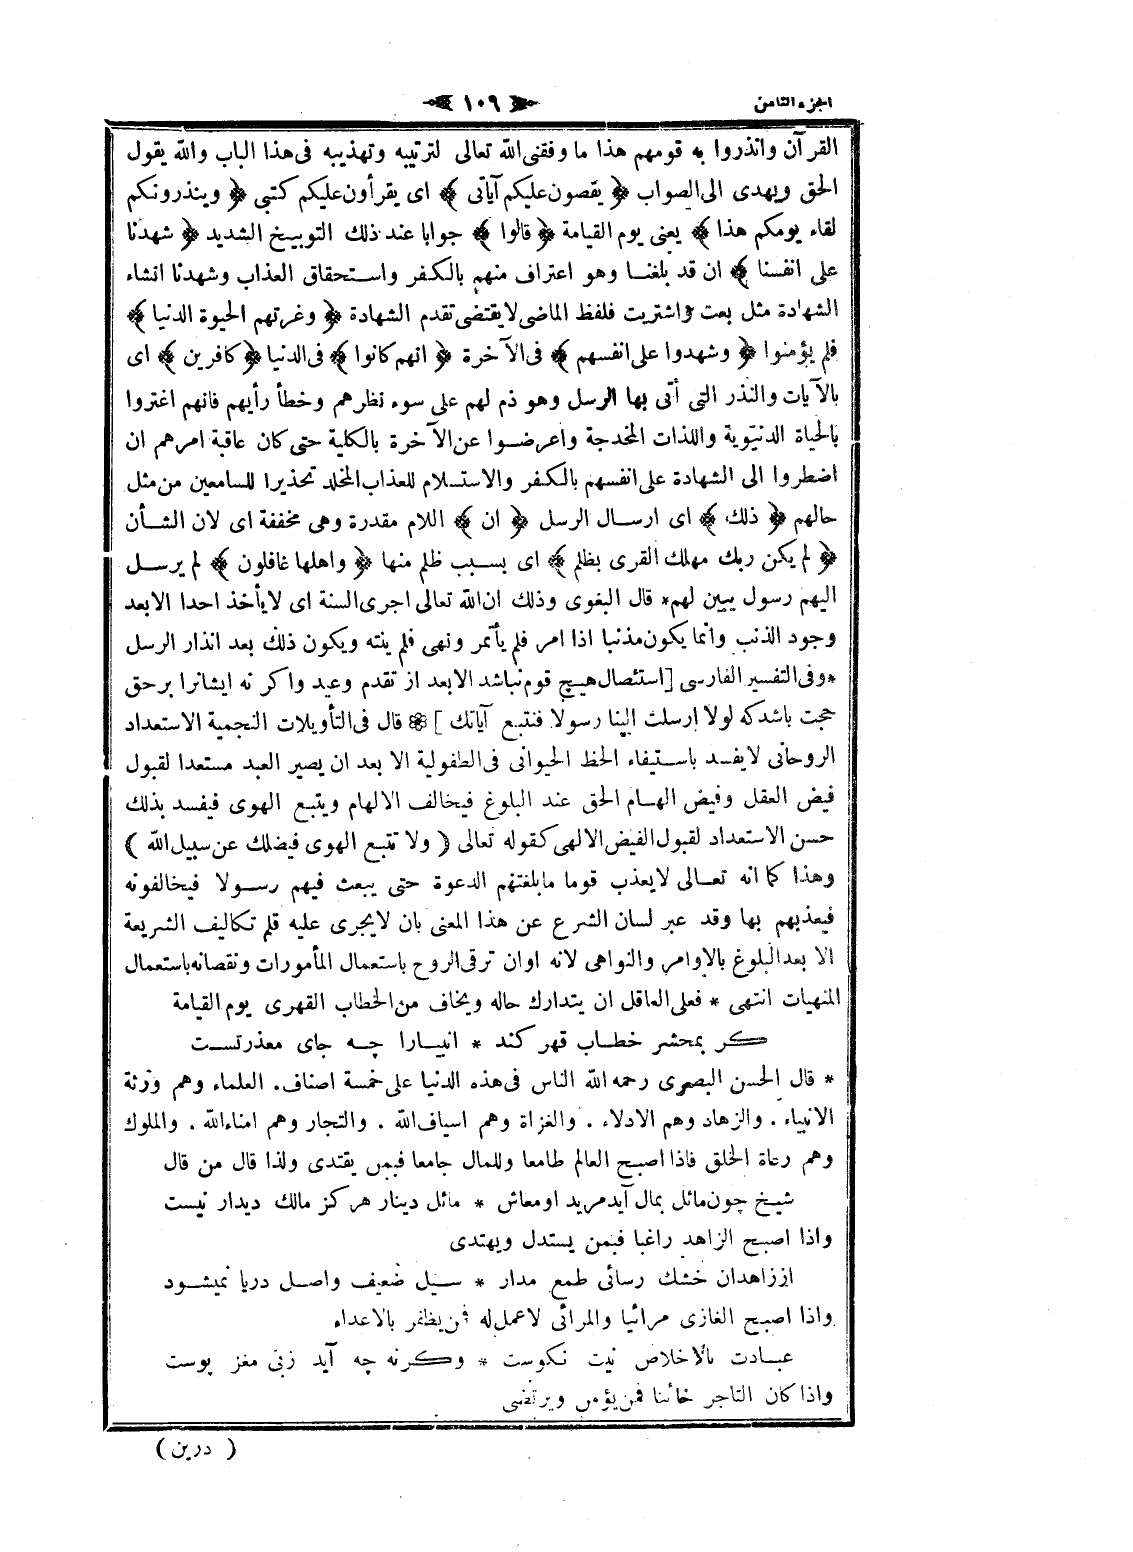 الجزء الثامن ١٠٩
القرآن وانذروا به قومهم هذا ما وفقنى الله تعالى لترتيبه وتهذيبه فى هذا الباب والله يقول
الحق ويهدى الى الصواب ﴿ يقصون عليكم آياتى ﴾ اى يقرأون عليكم كتبى ﴿ وينذرونكم
لقاء يومكم هذا ﴾ يعنى يوم القيامة ﴿ قالوا ﴾ جوابا عند ذلك التوبيخ الشديد ﴿ شهدنا
على انفسنا ﴾ ان قد بلغنا وهو اعتراف منهم بالكفر واستحقاق العذاب وشهدنا انشاء
الشهادة مثل بعت واشتريت فلفظ الماضى لايقتضى تقدم الشهادة ﴿ وغرتهم الحيوة الدنيا ﴾
فلم يؤمنوا ﴿ وشهدوا على انفسهم ﴾ فى الآخرة ﴿ انهم كانوا ﴾ فى الدنيا ﴿ كافرين ﴾ اى
بالآيات والنذر التى أتى بها الرسل وهو ذم لهم على سوء نظرهم وخطأ رأيهم فانهم اغتروا
بالحياة الدنيوية واللذات المخدجة واعرضوا عن الآخرة بالكلية حتى كان عاقبة امرهم ان
اضطروا الى الشهادة على انفسهم بالكفر والاستسلام للعذاب المخلد تحذيرا للسامعين من مثل
حالهم ﴿ ذلك ﴾ اى ارسال الرسل ﴿ ان ﴾ اللام مقدرة وهى مخففة اى لان الشأن
﴿ لم يكن ربك مهلك القرى بظلم ﴾ اى بسبب ظلم منها ﴿ واهلها غافلون ﴾ لم يرسل
اليهم رسول يبين لهم * قال البغوى وذلك ان الله تعالى اجرى السنة اى لايأخذ احدا الا بعد
وجود الذنب وانما يكون مذنبا اذا امر فلم يأتمر ونهى فلم ينته ويكون ذلك بعد انذار الرسل
* وفى التفسير الفارسى [ استئصال هيچ قوم نباشد الا بعد از تقدم وعيد واكر نه ايشانرا برحق
حجت باشد كه لولا ارسلت الينا رسولا فنتبع آياتك ] ❁ قال فى التأويلات النجمية الاستعداد
الروحانى لايفسد باستيفاء الحظ الحيوانى فى الطفولية الا بعد ان يصير العبد مستعدا لقبول
فيض العقل وفيض الهام الحق عند البلوغ فيخالف الالهام ويتبع الهوى فيفسد بذلك
حسن الاستعداد لقبول الفيض الالهى كقوله تعالى ( ولا تتبع الهوى فيضلك عن سبيل الله )
وهذا كما انه تعالى لايعذب قوما مابلغتهم الدعوة حتى يبعث فيهم رسولا فيخالفونه
فيعذبهم بها وقد عبر لسان الشرع عن هذا المعنى بان لايجرى عليه قلم تكاليف الشريعة
الا بعد البلوغ بالاوامر والنواهى لانه اوان ترقى الروح باستعمال المأمورات ونقصانه باستعمال
المنهيات انتهى * فعلى العاقل ان يتدارك حاله ويخاف من الخطاب القهرى يوم القيامة
كر بمحشر خطاب قهر كند * انبيارا چه جاى معذرتست
* قال الحسن البصرى رحمه الله الناس فى هذه الدنيا على خمسة اصناف. العلماء وهم ورثة
الانبياء . والزهاد وهم الادلاء . والغزاة وهم اسياف الله . والتجار وهم امناء الله . والملوك
وهم رعاة الخلق فاذا اصبح العالم طامعا وللمال جامعا فبمن يقتدى ولذا قال من قال
شيخ چون مائل بمال آيد مريد او مباش * مائل دينار هركز مالك ديدار نيست
واذا اصبح الزاهد راغبا فبمن يستدل ويهتدى
از زاهدان خشك رسائى طمع مدار * سيل ضعيف واصل دريا نميشود
واذا اصبح الغازى مرائيا والمرائى لاعمل له فمن يظفر بالاعداء
عبادت بالاخلاص نيت نكوست * وكرنه چه آيد زبى مغز پوست
واذا كان التاجر خائنا فمن يؤمن ويرتضى
( درين )